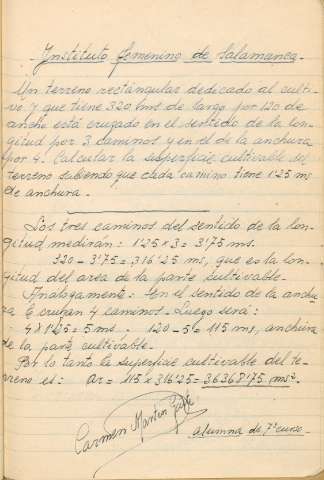 Instituto femenino de Salamanca.
Un terreno rectángular dedicado al culti-
vo y que tiene 320 ms de largo por 120 de
ancho está cruzado en el sentido de la lon-
gitud por 3 caminos y en el de la anchura
por 4. Calcular la superficie cultivable del
terreno sabiendo que cada camino tiene 1'25 ms
de anchura.
Los tres caminos del sentido de la lon-
gitud medirán: 1'25 x 3 = 3'75 ms.
320 - 3'75 = 316'25 ms, que es la lon-
gitud del area de la parte cultivable.
Analogamente: En el sentido de la anchu-
ra le cruzan 4 caminos. Luego será:
4 x 1'25 = 5 ms. 120 - 5 = 115 ms, anchura
de la parte cultivable.
Por lo tanto la superficie cultivable del te-
rreno es: ar = 115 x 316'25 = 36368'75 ms².
Carmen Martín Gaite
alumna de 7º curso.